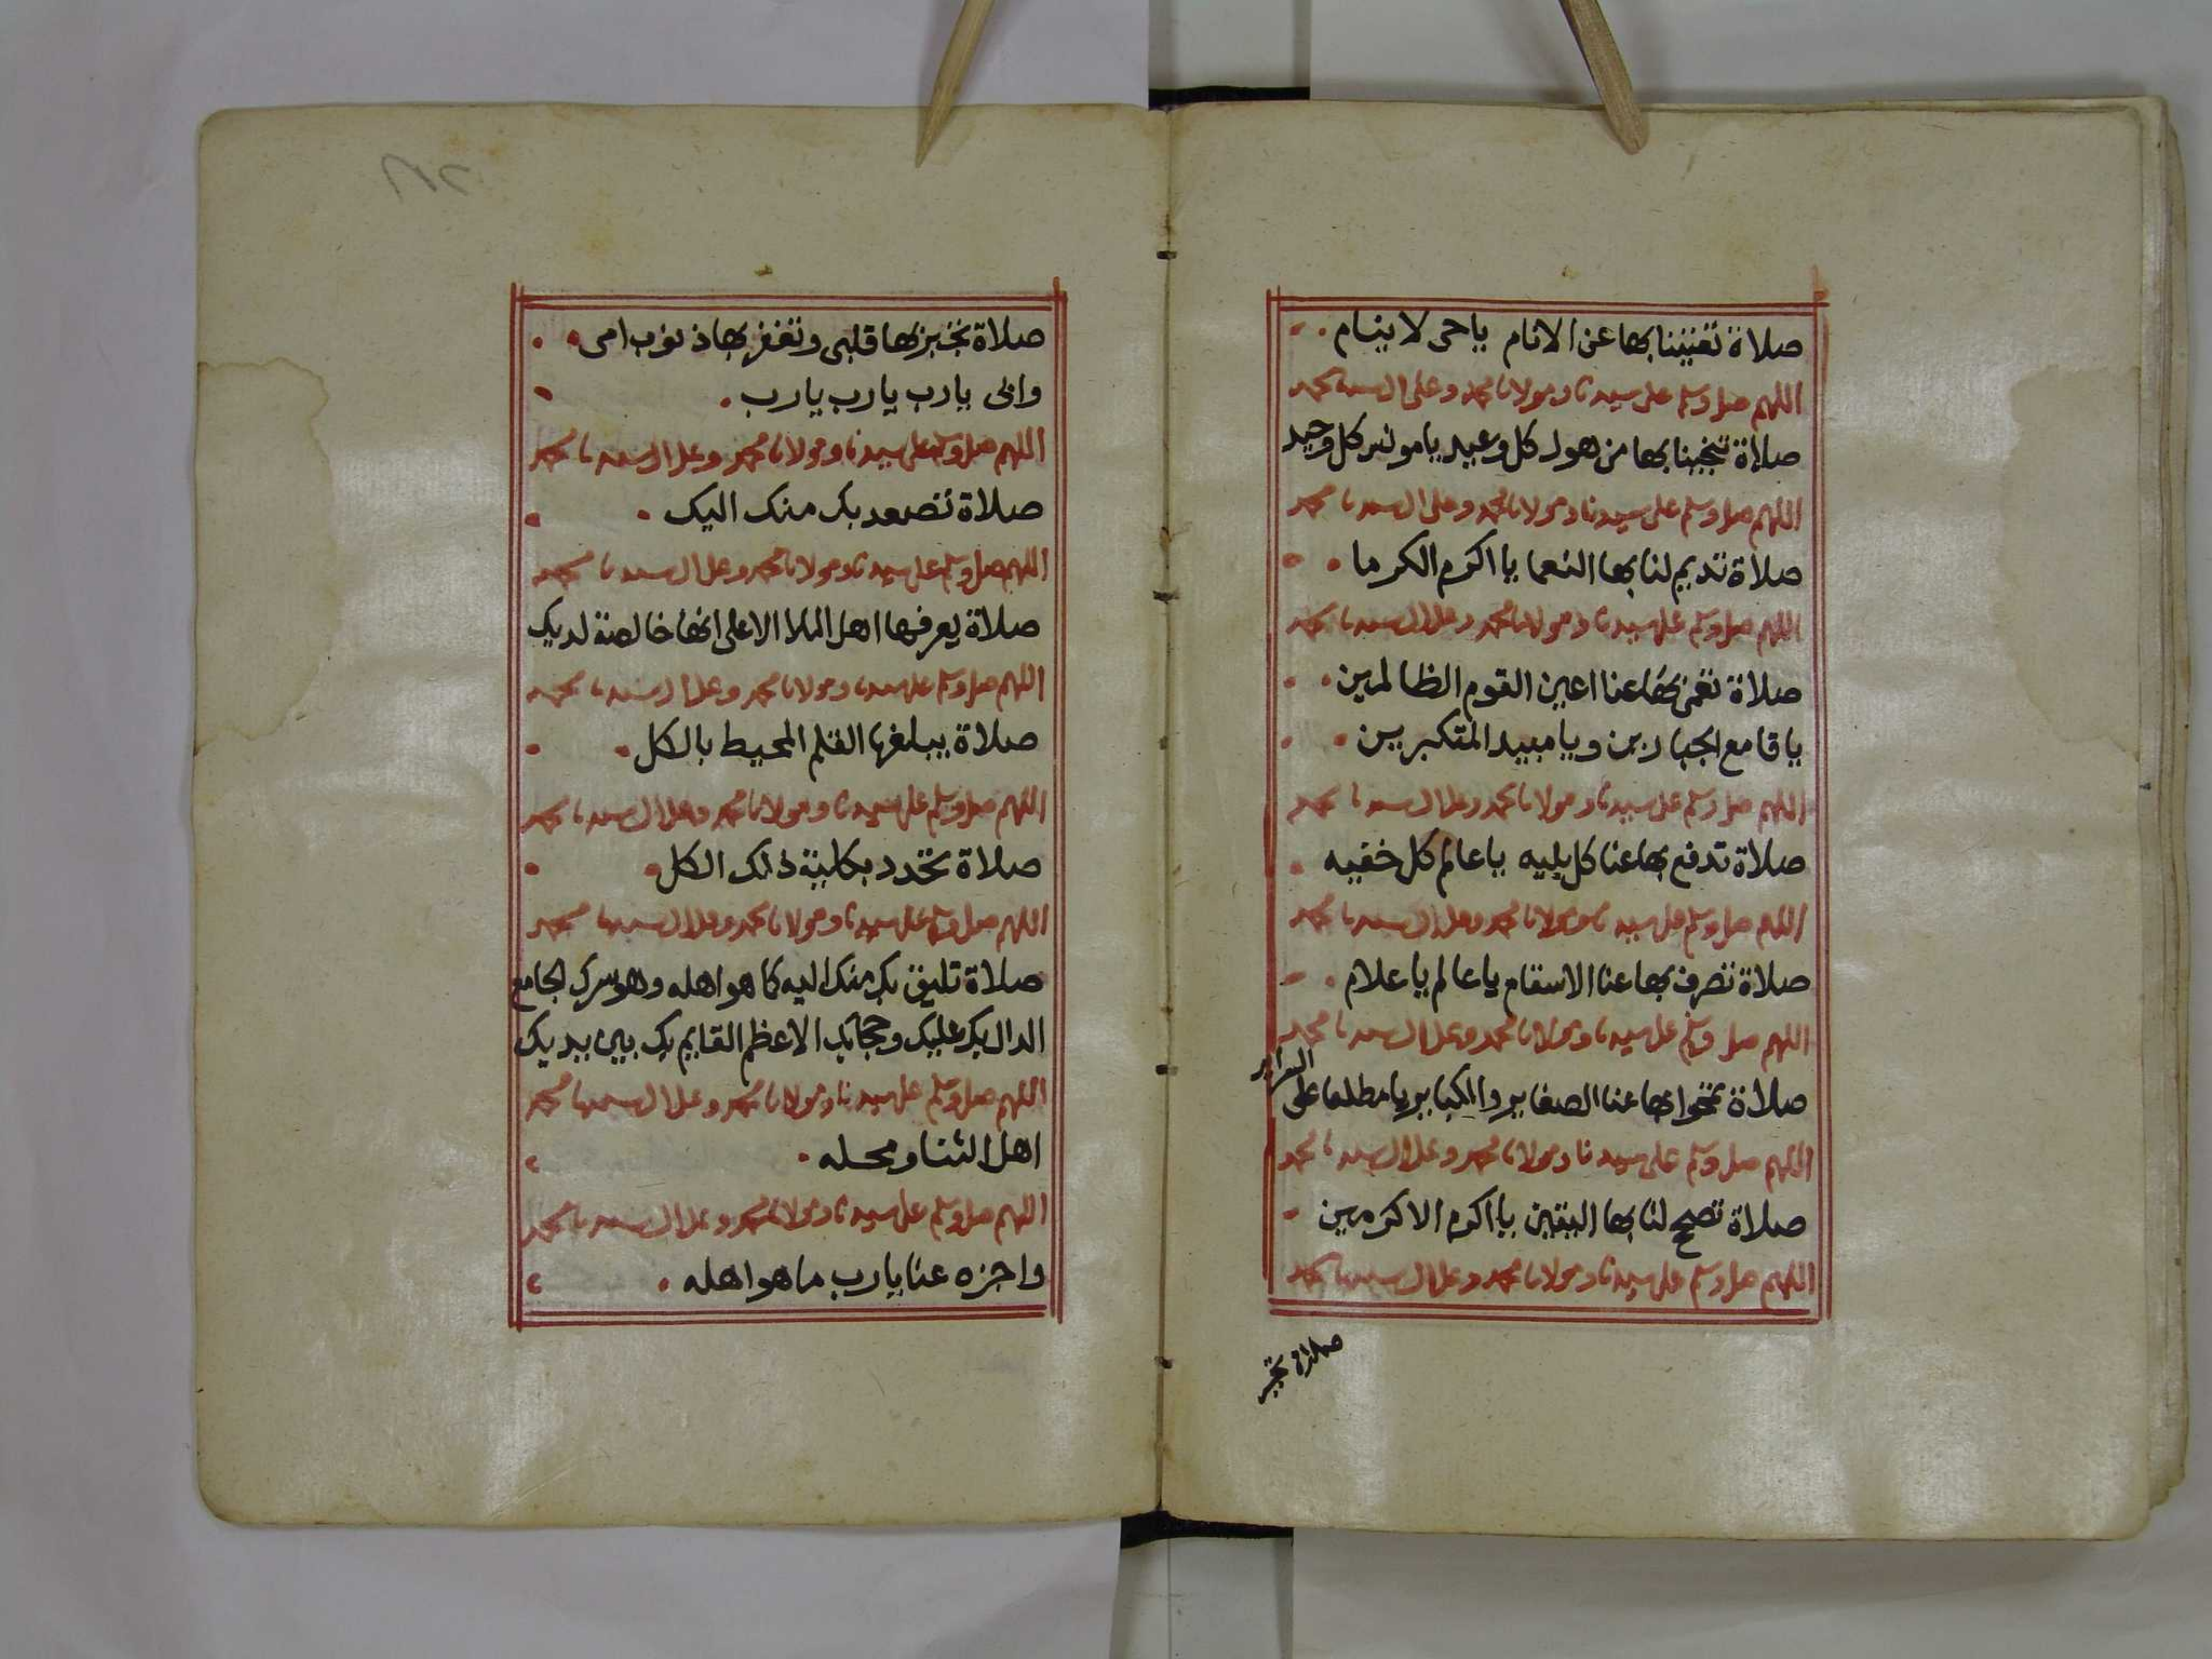 صلاة تغنينا بها عن الانام ياحى لا ينام
اللهم صل وسلم على سيدنا ومولانا محمد وعلى ال سيدنا محمد
صلاة تنجينا بها من هول كل وعيد يا مونس كل وحيد
اللهم صل وسلم على سيدنا ومولانا محمد وعلى ال سيدنا محمد
صلاة تديم لنا بها النعما يا اكرم الكرما
اللهم صل وسلم على سيدنا ومولانا محمد وعلى ال سيدنا محمد
صلاة تغمى بها عنا اعين القوم الظالمين
يا قامع الجبارين ويا مبيد المتكبريين
اللهم صل وسلم على سيدنا ومولانا محمد وعلى ال سيدنا محمد
صلاة تدفع بها عنا كل بليه يا عالم كل خفيه
اللهم صل وسلم على سيدنا ومولانا محمد وعلى ال سيدنا محمد
صلاة تصرف بها عنا الاسقام يا عالم يا علام
اللهم صل وسلم على سيدنا ومولانا محمد وعلى ال سيدنا محمد
صلاة تمحوا بها عنا الصغاير والكباير يا مطلعا على السراير
اللهم صل وسلم على سيدنا ومولانا محمد وعلى ال سيدنا محمد
صلاة تصح لنا بها اليقين يا اكرم الاكرمين
اللهم صل وسلم على سيدنا ومولانا محمد وعلى ال سيدنا محمد
صلاة تجبر
صلاة تجبر بها قلبى وتغفر بها ذنوب امى
وابى يارب يارب يارب
اللهم صل وسلم على سيدنا ومولانا محمد وعلى ال سيدنا محمد
صلاة تصعد بك منك اليك
اللهم صل وسلم على سيدنا ومولانا محمد وعلى ال سيدنا محمد
صلاة يعرفها اهل الملا الاعلى انها خالصة لديك
اللهم صل وسلم على سيدنا ومولانا محمد وعلى ال سيدنا محمد
صلاة يبلغها القلم المحيط بالكل
اللهم صل وسلم على سيدنا ومولانا محمد وعلى ال سيدنا محمد
صلاة تحدد بكلية ذلك الكل
اللهم صل وسلم على سيدنا ومولانا محمد وعلى ال سيدنا محمد
صلاة تليق بك منك اليه كما هو اهله وهو سرك الجامع
الدال بك عليك وحجابك الاعظم القايم بك بين يديك
اللهم صل وسلم على سيدنا ومولانا محمد وعلى ال سيدنا محمد
اهل الثنا ومحله
اللهم صل وسلم على سيدنا ومولانا محمد وعلى ال سيدنا محمد
واجزه عنا يارب ما هو اهله